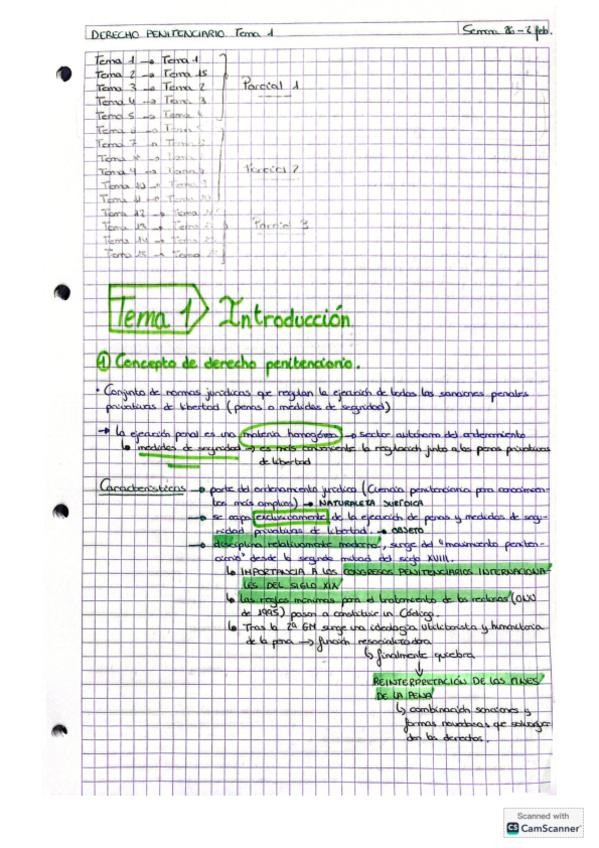 DERECHO PENITENCIARIO Tema 1
Semana 26-2 feb.
Tema 1 → Tema 1
Tema 2 → Tema 15
Tema 3 → Tema 2
Tema 4 → Tema 3
Tema 5 → Tema 4
Parcial 1
Tema 6 → Tema 5
Tema 7
Tema
Tema 9 → Tema
Tema 10 → Tema
Tema 11 → Tema
Parcial 2
Tema 12 → Tema
Tema 13 → Tema
Tema 14 → Tema
Tema 15 → Tema
Parcial 3
Tema 1 Introducción
① Concepto de derecho penitenciario.
• Conjunto de normas jurídicas que regulan la ejecución de todas las sanciones penales
privativas de libertad (penas o medidas de seguridad)
→ La ejecución penal es una materia homogénea → sector autónomo del ordenamiento
↳ medidas de seguridad → es más conveniente la regulación junto a las penas privativas
de libertad
Características → parte del ordenamiento jurídico (Ciencia penitenciaria para conocimien-
tos más amplios) → NATURALEZA JURÍDICA
→ se ocupa exclusivamente de la ejecución de penas y medidas de segu-
ridad privativas de libertad. → OBJETO
→ disciplina relativamente moderna, surge del "movimiento peniten-
ciario" desde la segunda mitad del siglo XVIII.
↳ IMPORTANCIA A LOS CONGRESOS PENITENCIARIOS INTERNACIONA-
LES DEL SIGLO XIX
↳ Las reglas mínimas para el tratamiento de los reclusos (ONU
de 1995) pasan a constituir un Código.
↳ Tras la 2ª GM surge una ideología utilitarista y humanitaria
de la pena → función resocializadora
↳ finalmente quiebra
↓
REINTERPRETACIÓN DE LOS FINES
DE LA PENA
↳ combinación sanciones y
formas novedosas que salvaguar-
dan los derechos.
Scanned with
CS CamScanner